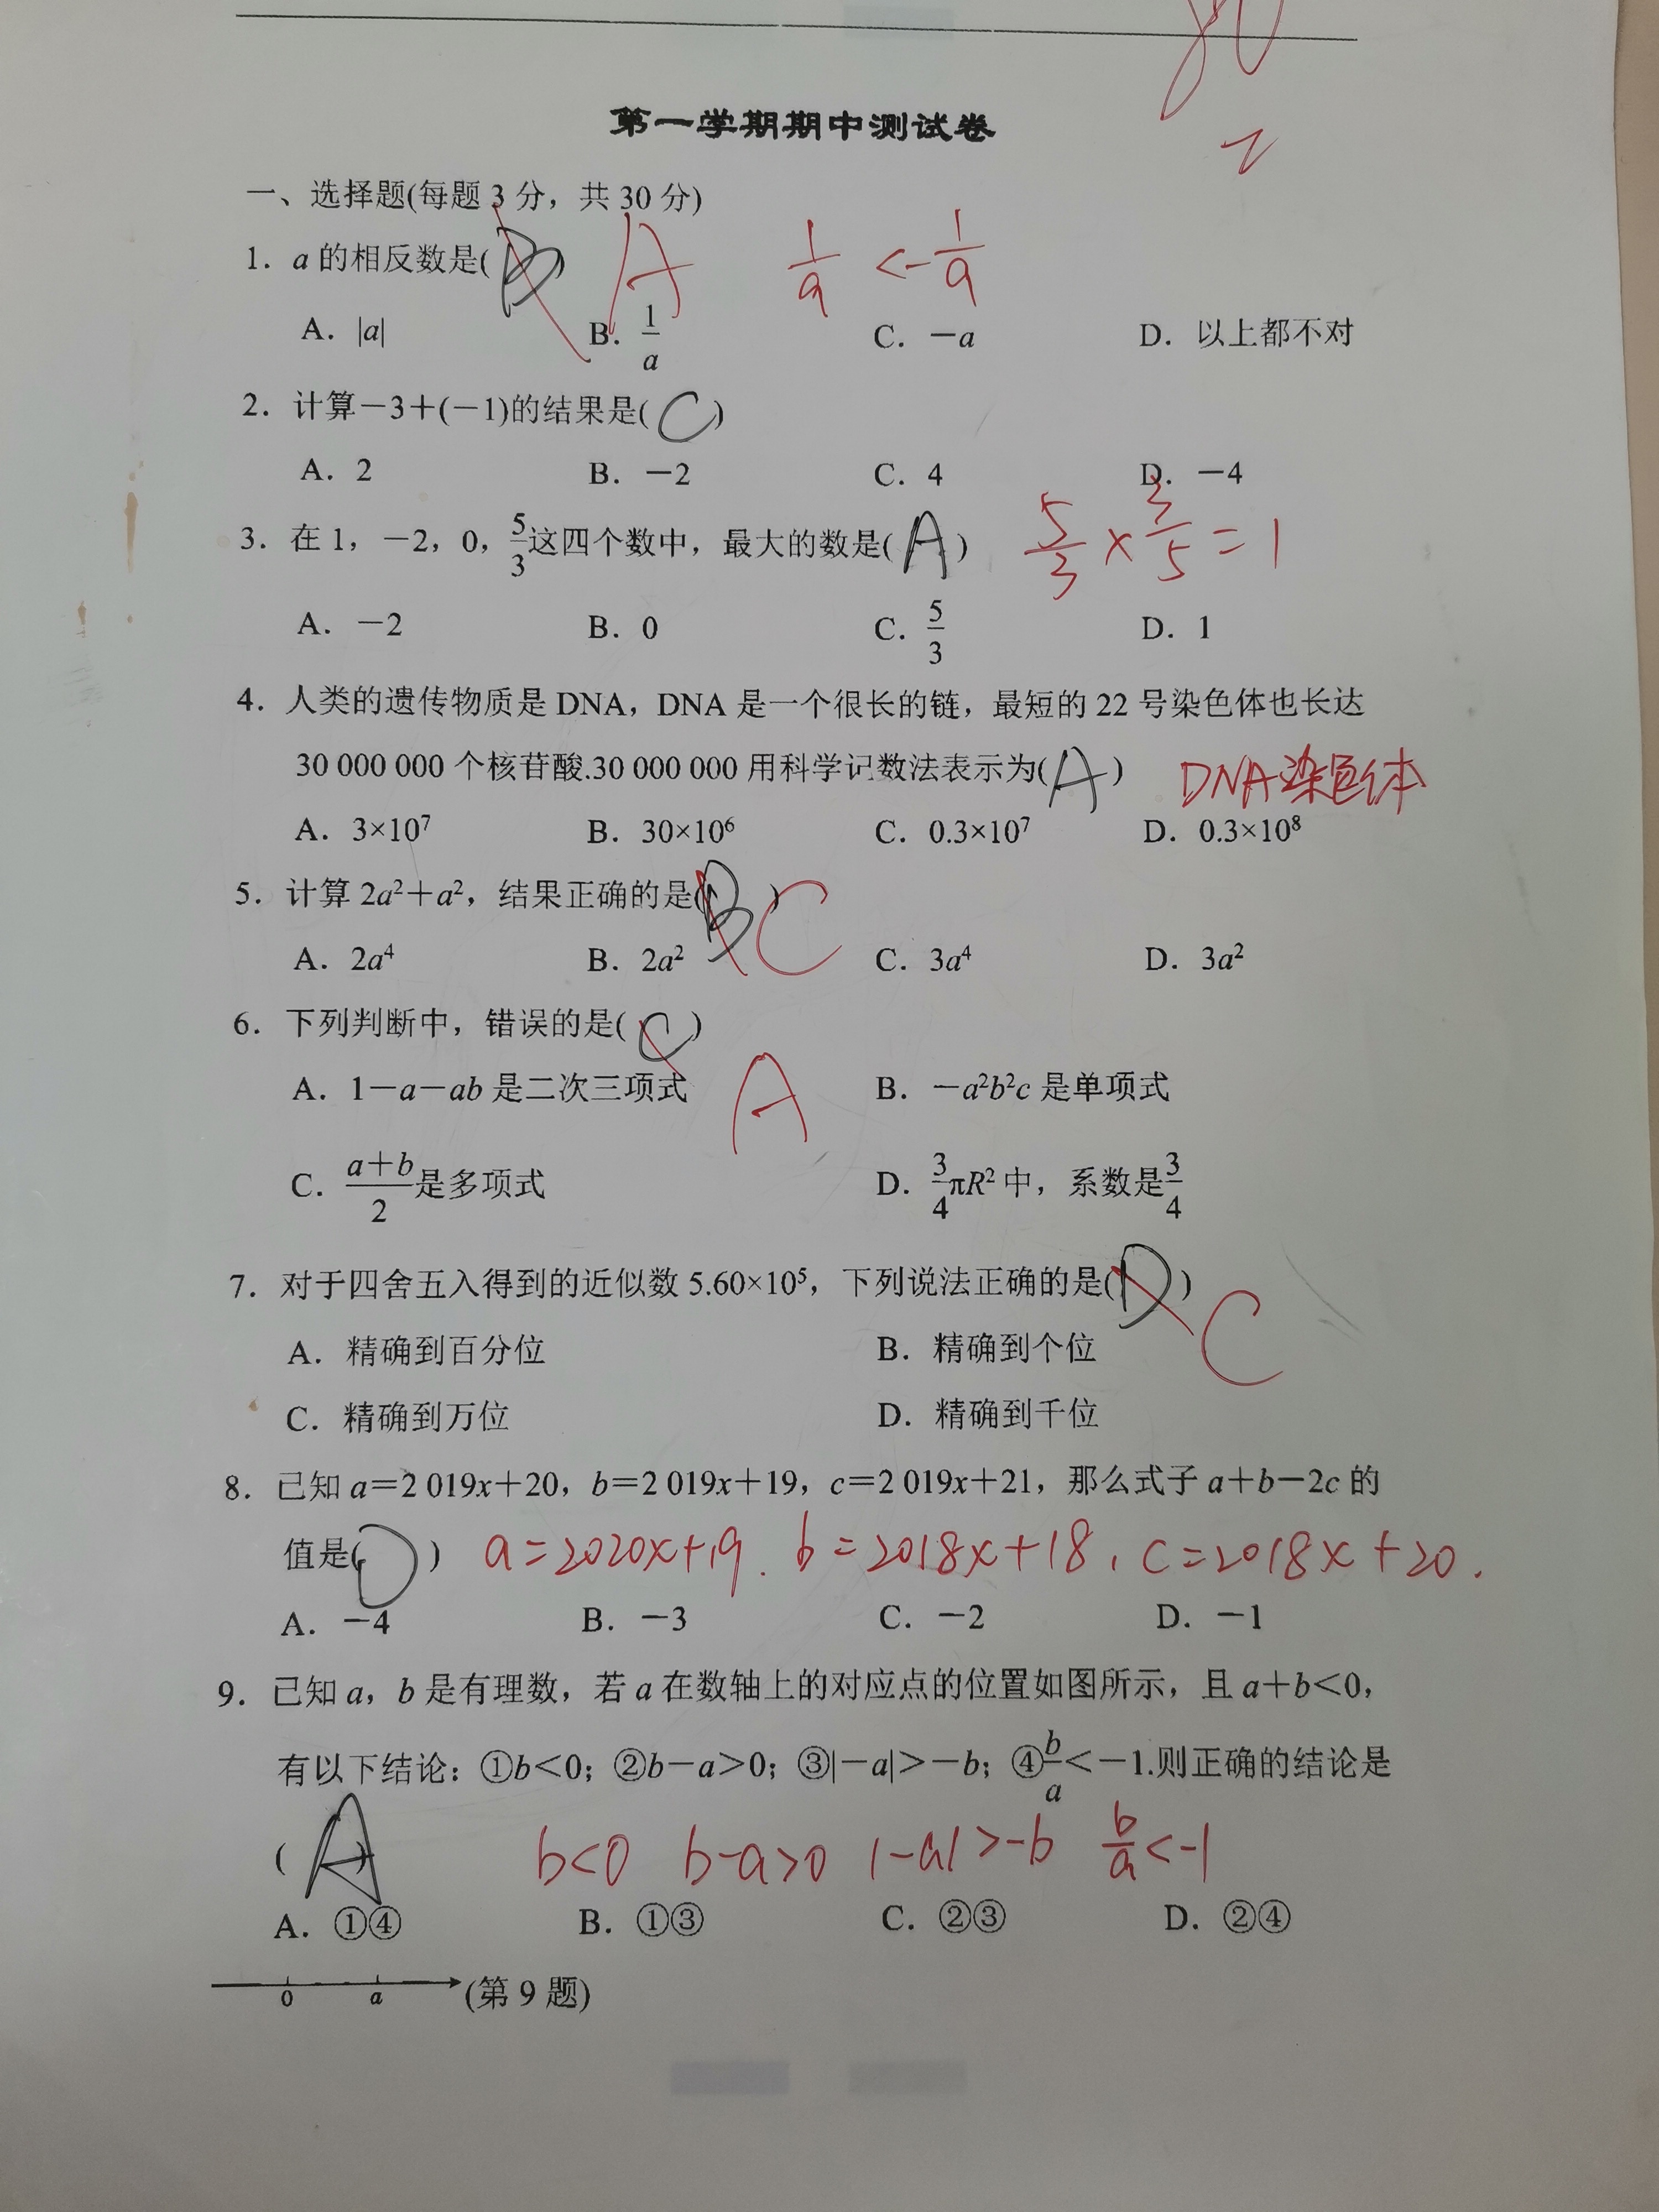 80
第一学期期中测试卷
一、选择题(每题 3 分，共 30 分)
1．a 的相反数是( B ) A 1/a <-1/a
A．|a| B．1/a C．－a D．以上都不对
2．计算－3＋(－1)的结果是( C )
A．2 B．－2 C．4 D．－4
3．在 1，－2，0，5/3这四个数中，最大的数是( A ) 5/3×3/5=1
A．－2 B．0 C．5/3 D．1
4．人类的遗传物质是 DNA，DNA 是一个很长的链，最短的 22 号染色体也长达
30 000 000 个核苷酸.30 000 000 用科学记数法表示为( A ) DNA染色体
A．3×10⁷ B．30×10⁶ C．0.3×10⁷ D．0.3×10⁸
5．计算 2a²＋a²，结果正确的是( B ) C
A．2a⁴ B．2a² C．3a⁴ D．3a²
6．下列判断中，错误的是( C )
A．1－a－ab 是二次三项式 A B．－a²b²c 是单项式
C．a＋b/2是多项式 D．3/4πR² 中，系数是3/4
7．对于四舍五入得到的近似数 5.60×10⁵，下列说法正确的是( D ) C
A．精确到百分位 B．精确到个位
C．精确到万位 D．精确到千位
8．已知 a＝2 019x＋20，b＝2 019x＋19，c＝2 019x＋21，那么式子 a＋b－2c 的
值是( D ) a=2020x+19. b=2018x+18, c=2018x+20.
A．－4 B．－3 C．－2 D．－1
9．已知 a，b 是有理数，若 a 在数轴上的对应点的位置如图所示，且 a＋b＜0，
有以下结论：①b＜0；②b－a＞0；③|－a|＞－b；④b/a＜－1.则正确的结论是
( A ) b<0 b-a>0 |-a|>-b b/a<-1
A．①④ B．①③ C．②③ D．②④
0 a (第 9 题)